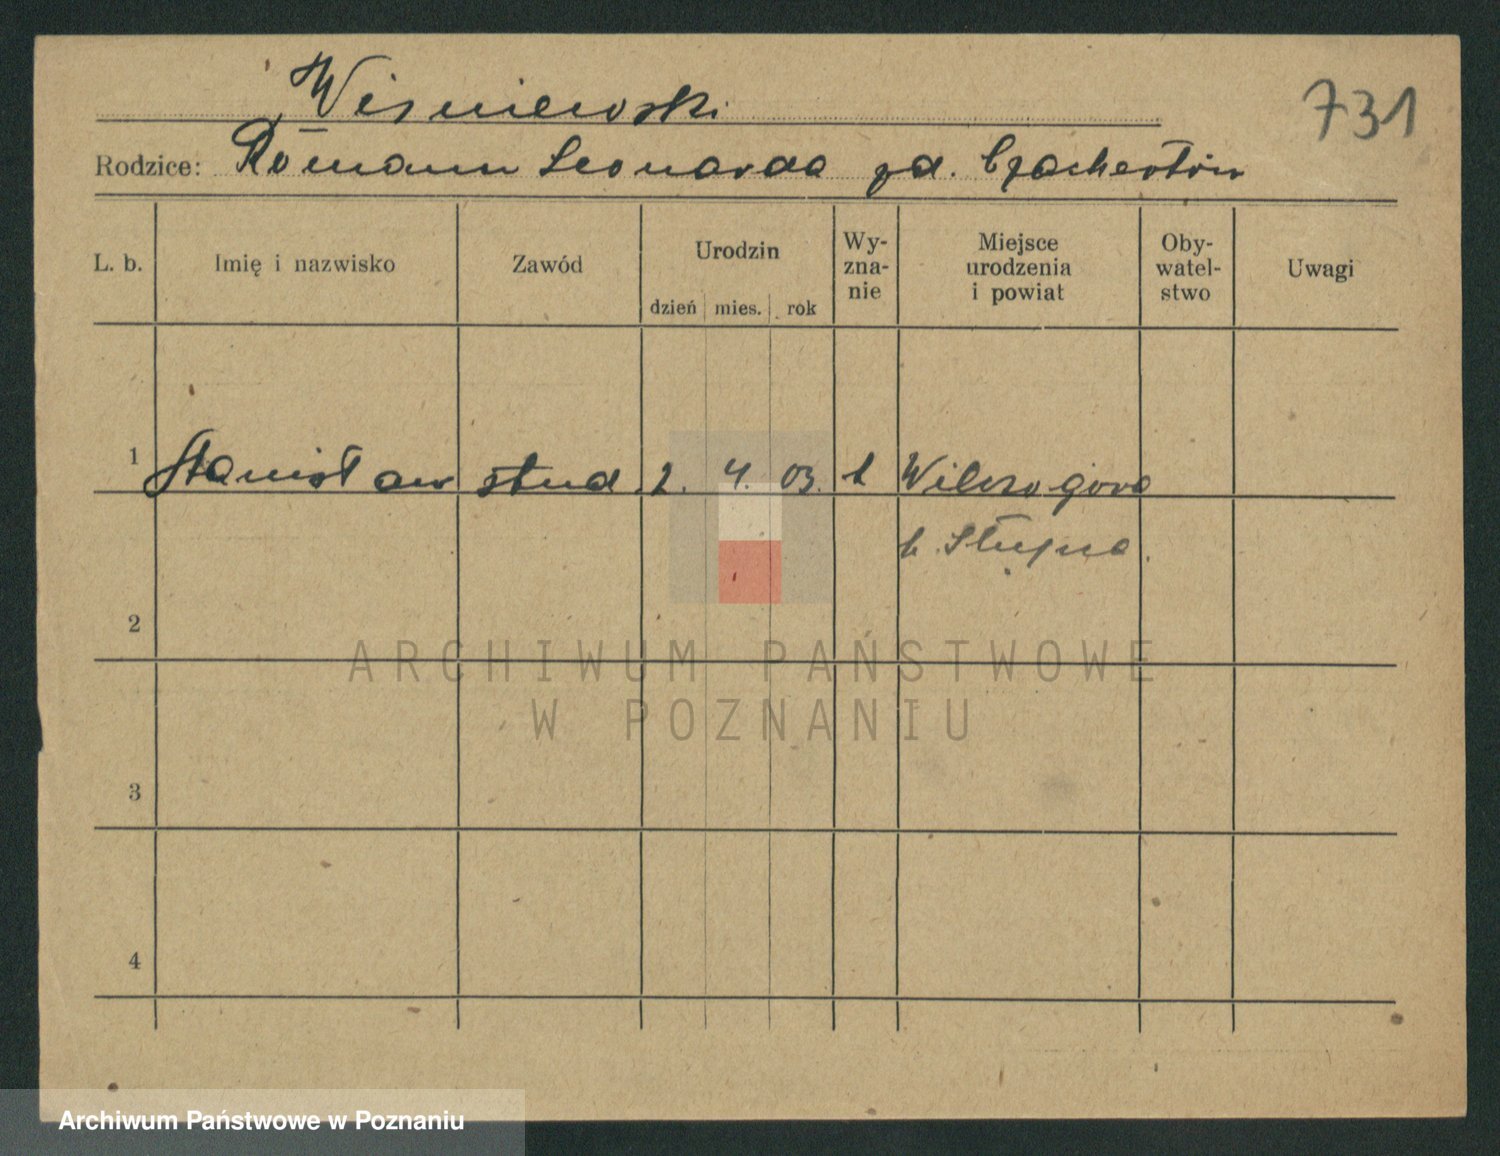 Wiśniewski
731
Rodzice: Romann Leonarda zd. Czachertów
L. b. Imię i nazwisko Zawód Urodzin dzień mies. rok Wy-zna-nie Miejsce urodzenia i powiat Oby-watel-stwo Uwagi
1 Stanisław stud. 2. 4. 03. Wilczogóra
p. Słupca.
2
ARCHIWUM PAŃSTWOWE
W POZNANIU
3
4
Archiwum Państwowe w Poznaniu